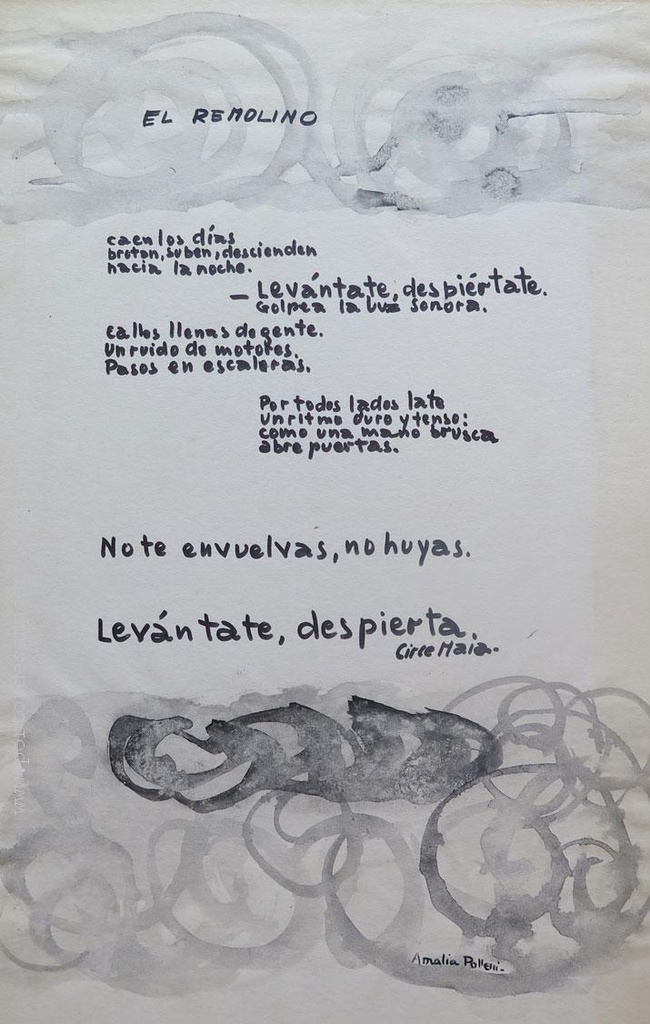 EL REMOLINO
caen los días
brotan, suben, descienden
hacia la noche.
— Levántate, despiértate.
Golpea la luz sonora.
calles llenas de gente.
Un ruido de motores.
Pasos en escaleras.
Por todos lados late
un ritmo duro y tenso:
como una mano brusca
abre puertas.
No te envuelvas, no huyas.
Levántate, despierta.
Circe Maia.
Amalia Polleri.